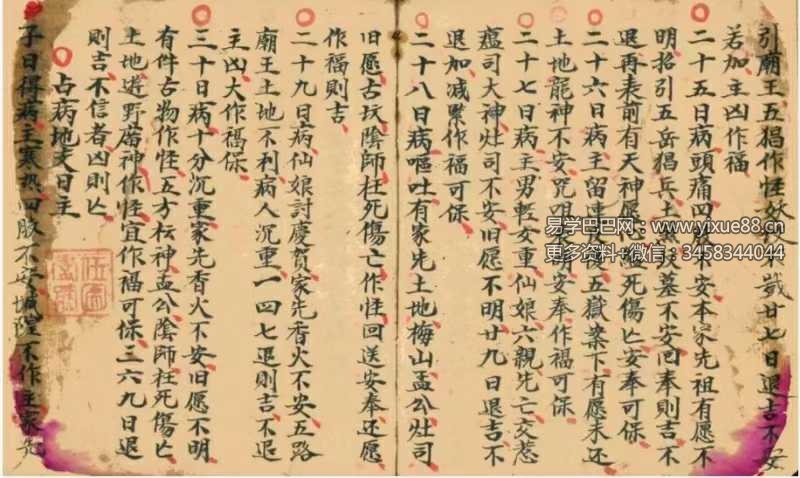 引廟王五猖作怪妖 歲廿七日退吉不安
若加主凶作福
二十五日病頭痛四 不安本家先祖有愿不
明招引五岳猖兵土 伏墓不安回奉則吉不
退再表前有天神愿 死傷亡安奉可保
二十六日病主留連反覆五嶽案下有愿未还
土地龍神不安咒咀 安奉作福可保
二十七日病主男輕女重仙娘六親先亡交惹
瘟司大神灶司不安旧愿不明廿九日退吉不
退加减繁作福可保
二十八日病嘔吐有家先土地梅山孟公灶司
旧愿古坟陰師枉死傷亡作怪回送安奉还愿
作福則吉
二十九日病仙娘討慶賀家先香火不安五路
廟王土地不利病人沉重一四七退則吉不退
主凶大作福保
三十日病十分沉重家先香火不安旧愿不明
有件古物作怪五方坛神孟公陰師枉死傷亡
土地遊野廟神作怪宜作福可保三六九日退
則吉不信者凶則亡
占病地支日主
子日得病主寒热四肢不安城隍不作主家先
易学巴巴网：www.yixue88.cn
更多资料+微信：3458344044